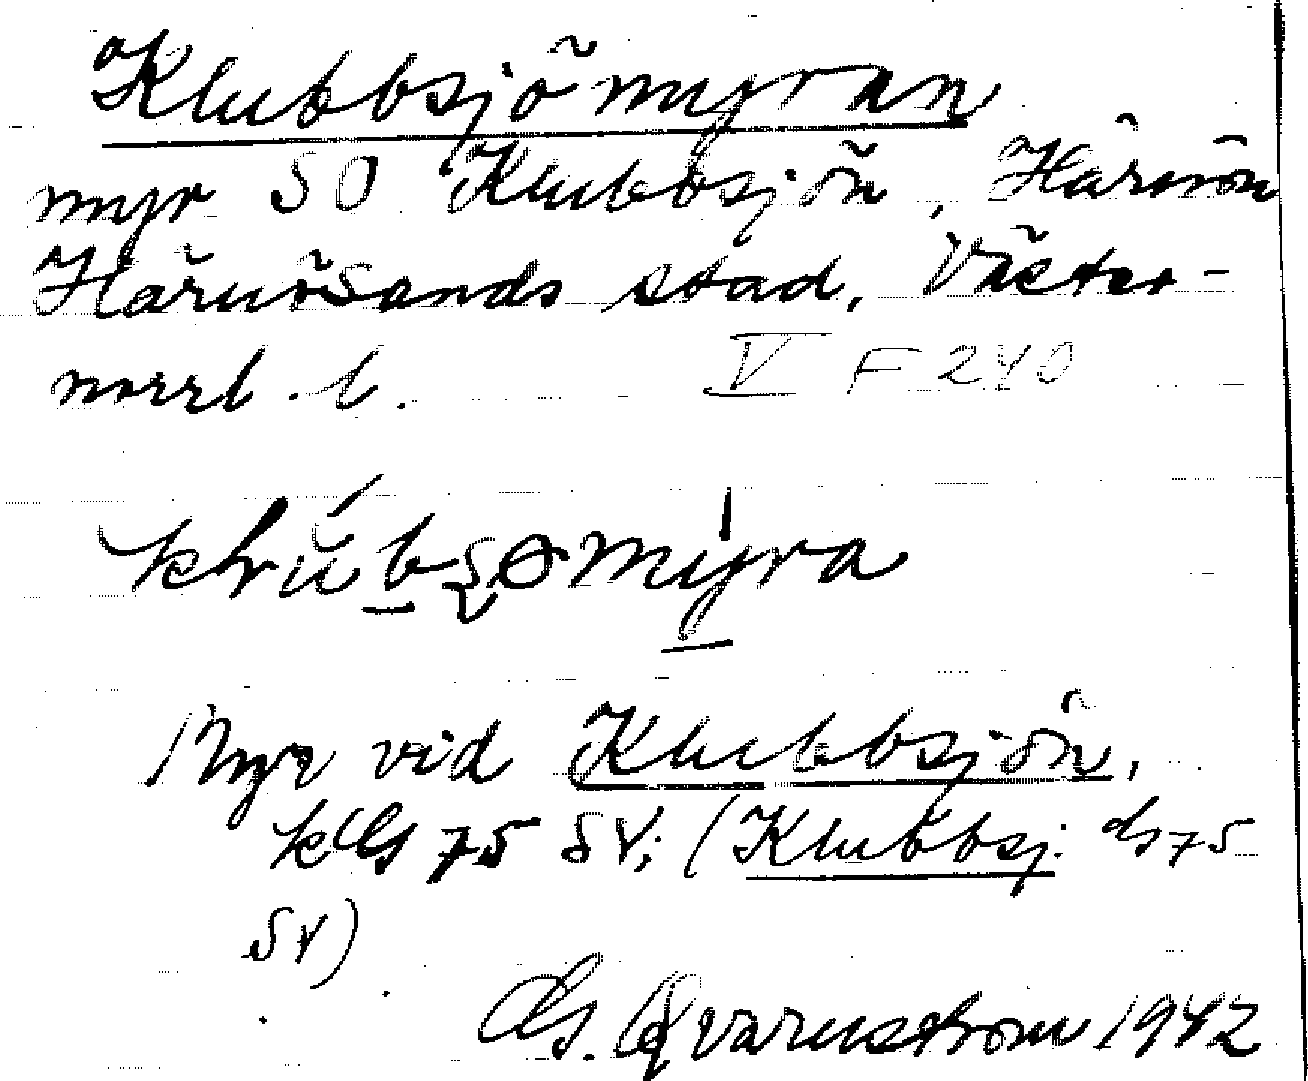 Klubbsjömyran
myr SO Klubbsjön, Härnön
Härnösands stad, Väster-
norrl. l. V F 240
Myr vid Klubbsjön,
75 SV; (Klubbsj. 75
SV)
Qvarnström 1942